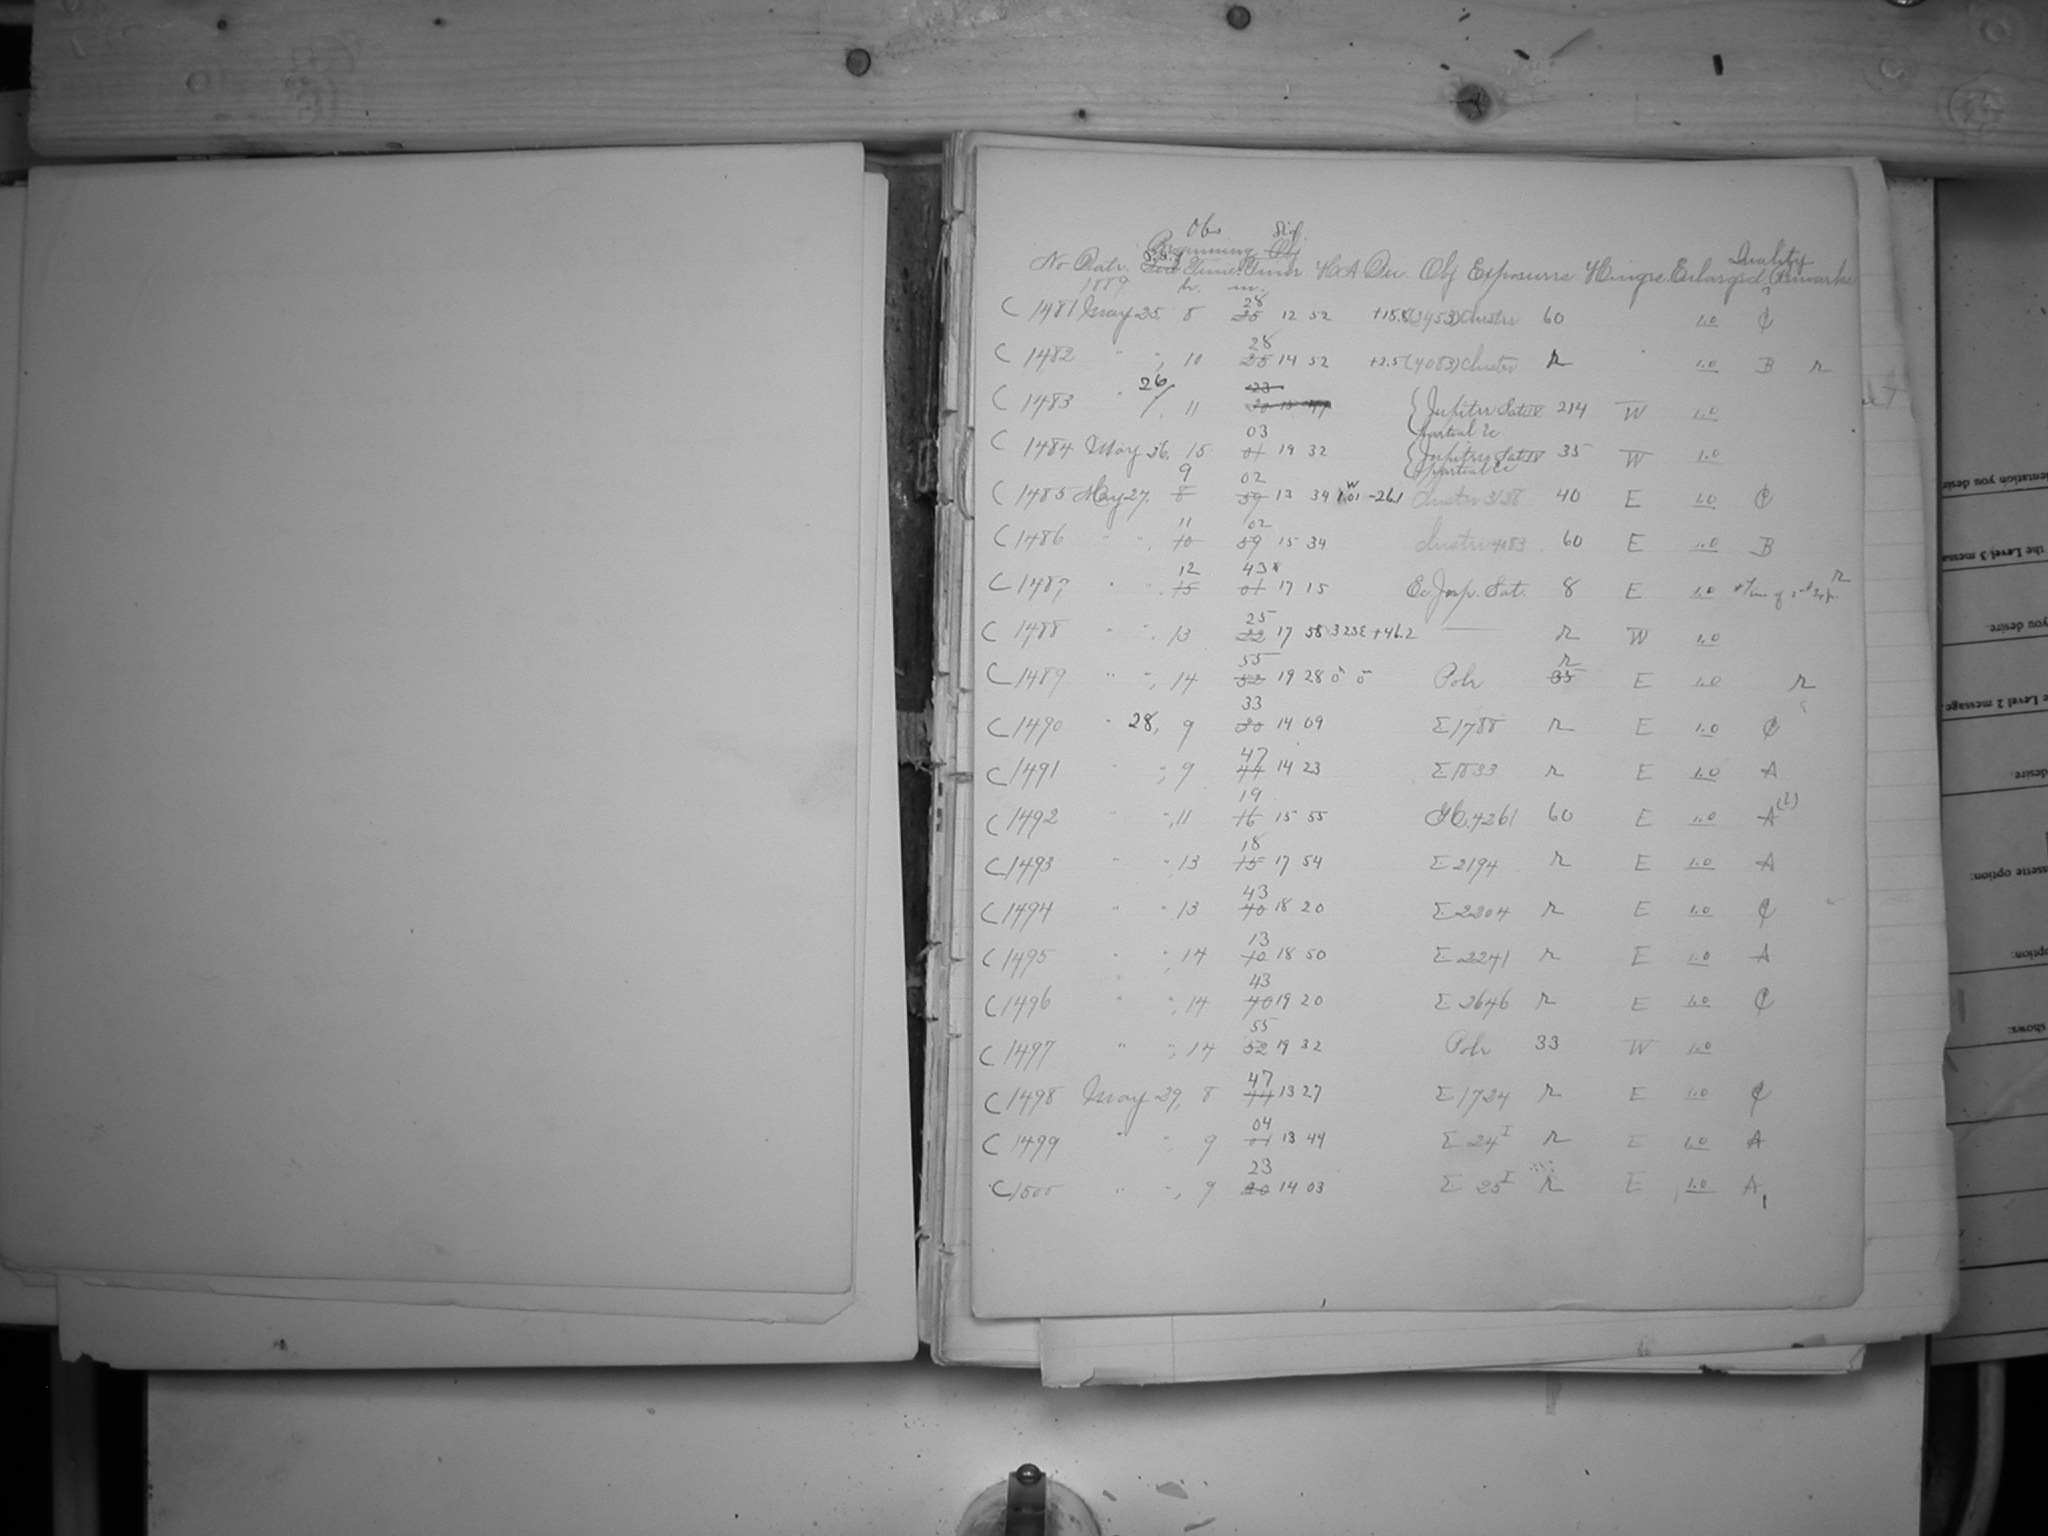 Obs Sid
Beginning Obj
No Date. Time. Time H A Dec. Obj Exposures Hinges. Enlarged Quality Remarks
1889 h. m.
28
C 1481 May 25. 8 25 12 52 +18.8 (3453) Cluster 60 1.0 C
28
C 1482 " ", 10 25 14 52 +2.5 (4083) Cluster R 1.0 B R
26 23
C 1483 " , 11 { Jupiter Sat IV 214 W 1.0
03 partial Ec.
C 1484 May 26. 15 01 19 32 { Jupiter Sat IV 35 W 1.0
9 02 partial Ec
C 1485 May 27. 8 59 13 34 1.01 W -26.1 Cluster 3128 40 E 1.0 C
11 02
C 1486 " ", 10 59 15 34 Cluster 4083 60 E 1.0 B
12 43* R
C 1487 " ". 15 01 17 15 Ec. Jup. Sat. 8 E 1.0 * Time of 2nd Exp.
25
C 1488 " ", 13 22 17 58 3 23 E +46.2 R W 1.0
55 R
C 1489 " ", 14 52 19 28 0 0 Pole 35 E 1.0 R
33
C 1490 " 28, 9 30 14 09 Σ 1788 R E 1.0 C
47
C 1491 ", 9 44 14 23 Σ 1833 R E 1.0 A
19 (?)
C 1492 ", 11 16 15 55 G.C. 4261 60 E 1.0 A
18
C 1493 " " 13 15 17 54 Σ 2194 R E 1.0 A
43
C 1494 " " 13 40 18 20 Σ 2204 R E 1.0 C
13
C 1495 " ", 14 10 18 50 Σ 2241 R E 1.0 A
43
C 1496 " ", 14 40 19 20 Σ 2646 R E 1.0 C
55
C 1497 " ", 14 52 19 32 Pole 33 W 1.0
47
C 1498 May 29, 8 44 13 27 Σ 1724 R E 1.0 C
04
C 1499 " " 9 01 13 44 Σ 24 I R E 1.0 A
23
C 1500 " ", 9 20 14 03 Σ 25 I R E 1.0 A
entation you desire
the Level 3 messa
you desire.
e Level 2 message
desire.
ssette option:
option:
shows: